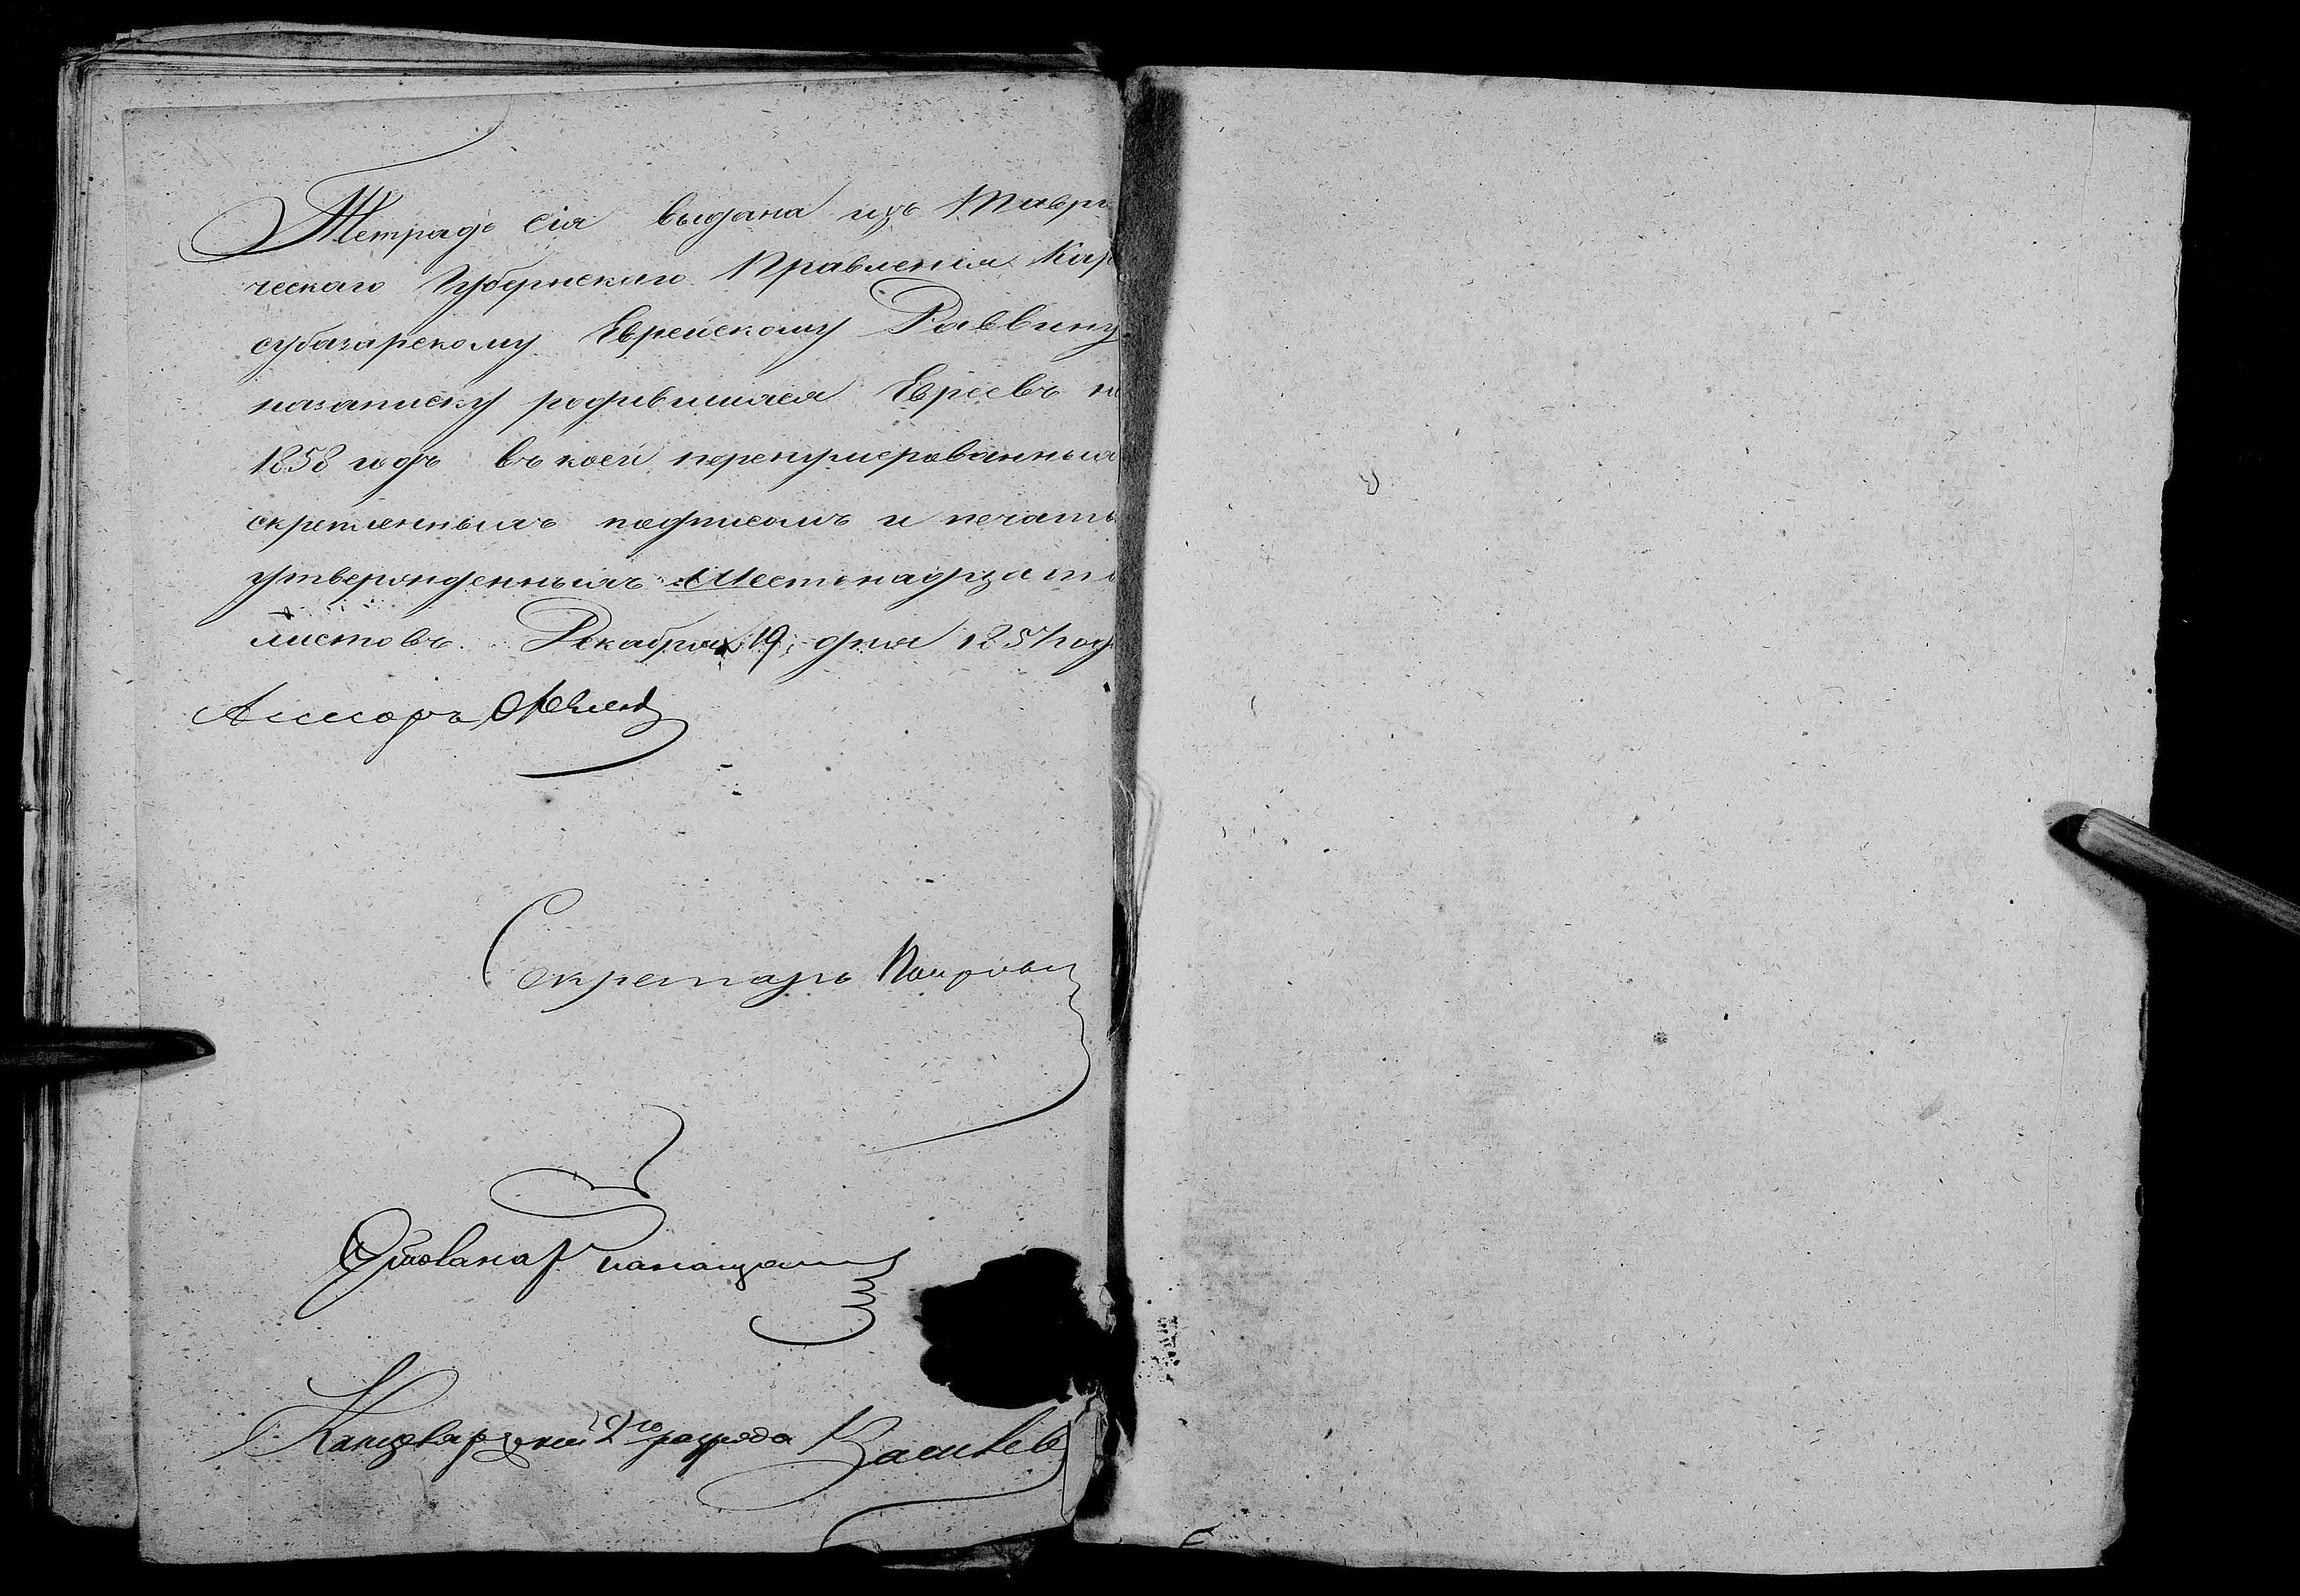 Тетрадь сія выдана изъ Таври
ческаго Губернскаго Правленія Кара
субазарскому Еврейскому Раввину
назаписку родившихся Евреевъ на
1858 годъ въ коей перенумерованныхъ
скрепленныхъ подписомъ и печатью
утвержденныхъ Шестонадцать
листовъ. Декабря 19 дня 1857 года
Ассесоръ
Секретарь
Канцелярской 2го разряда